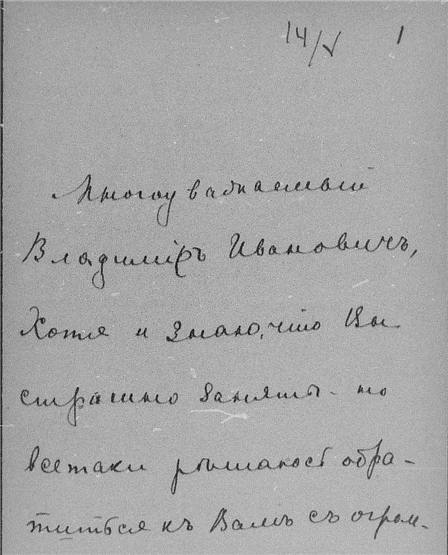 14/V 1
Многоуважаемый
Владимiръ Ивановичъ,
Хотя и знаю, что Вы
страшно заняты - но
всетаки рѣшаюсь обра-
титься къ Вамъ съ огром-